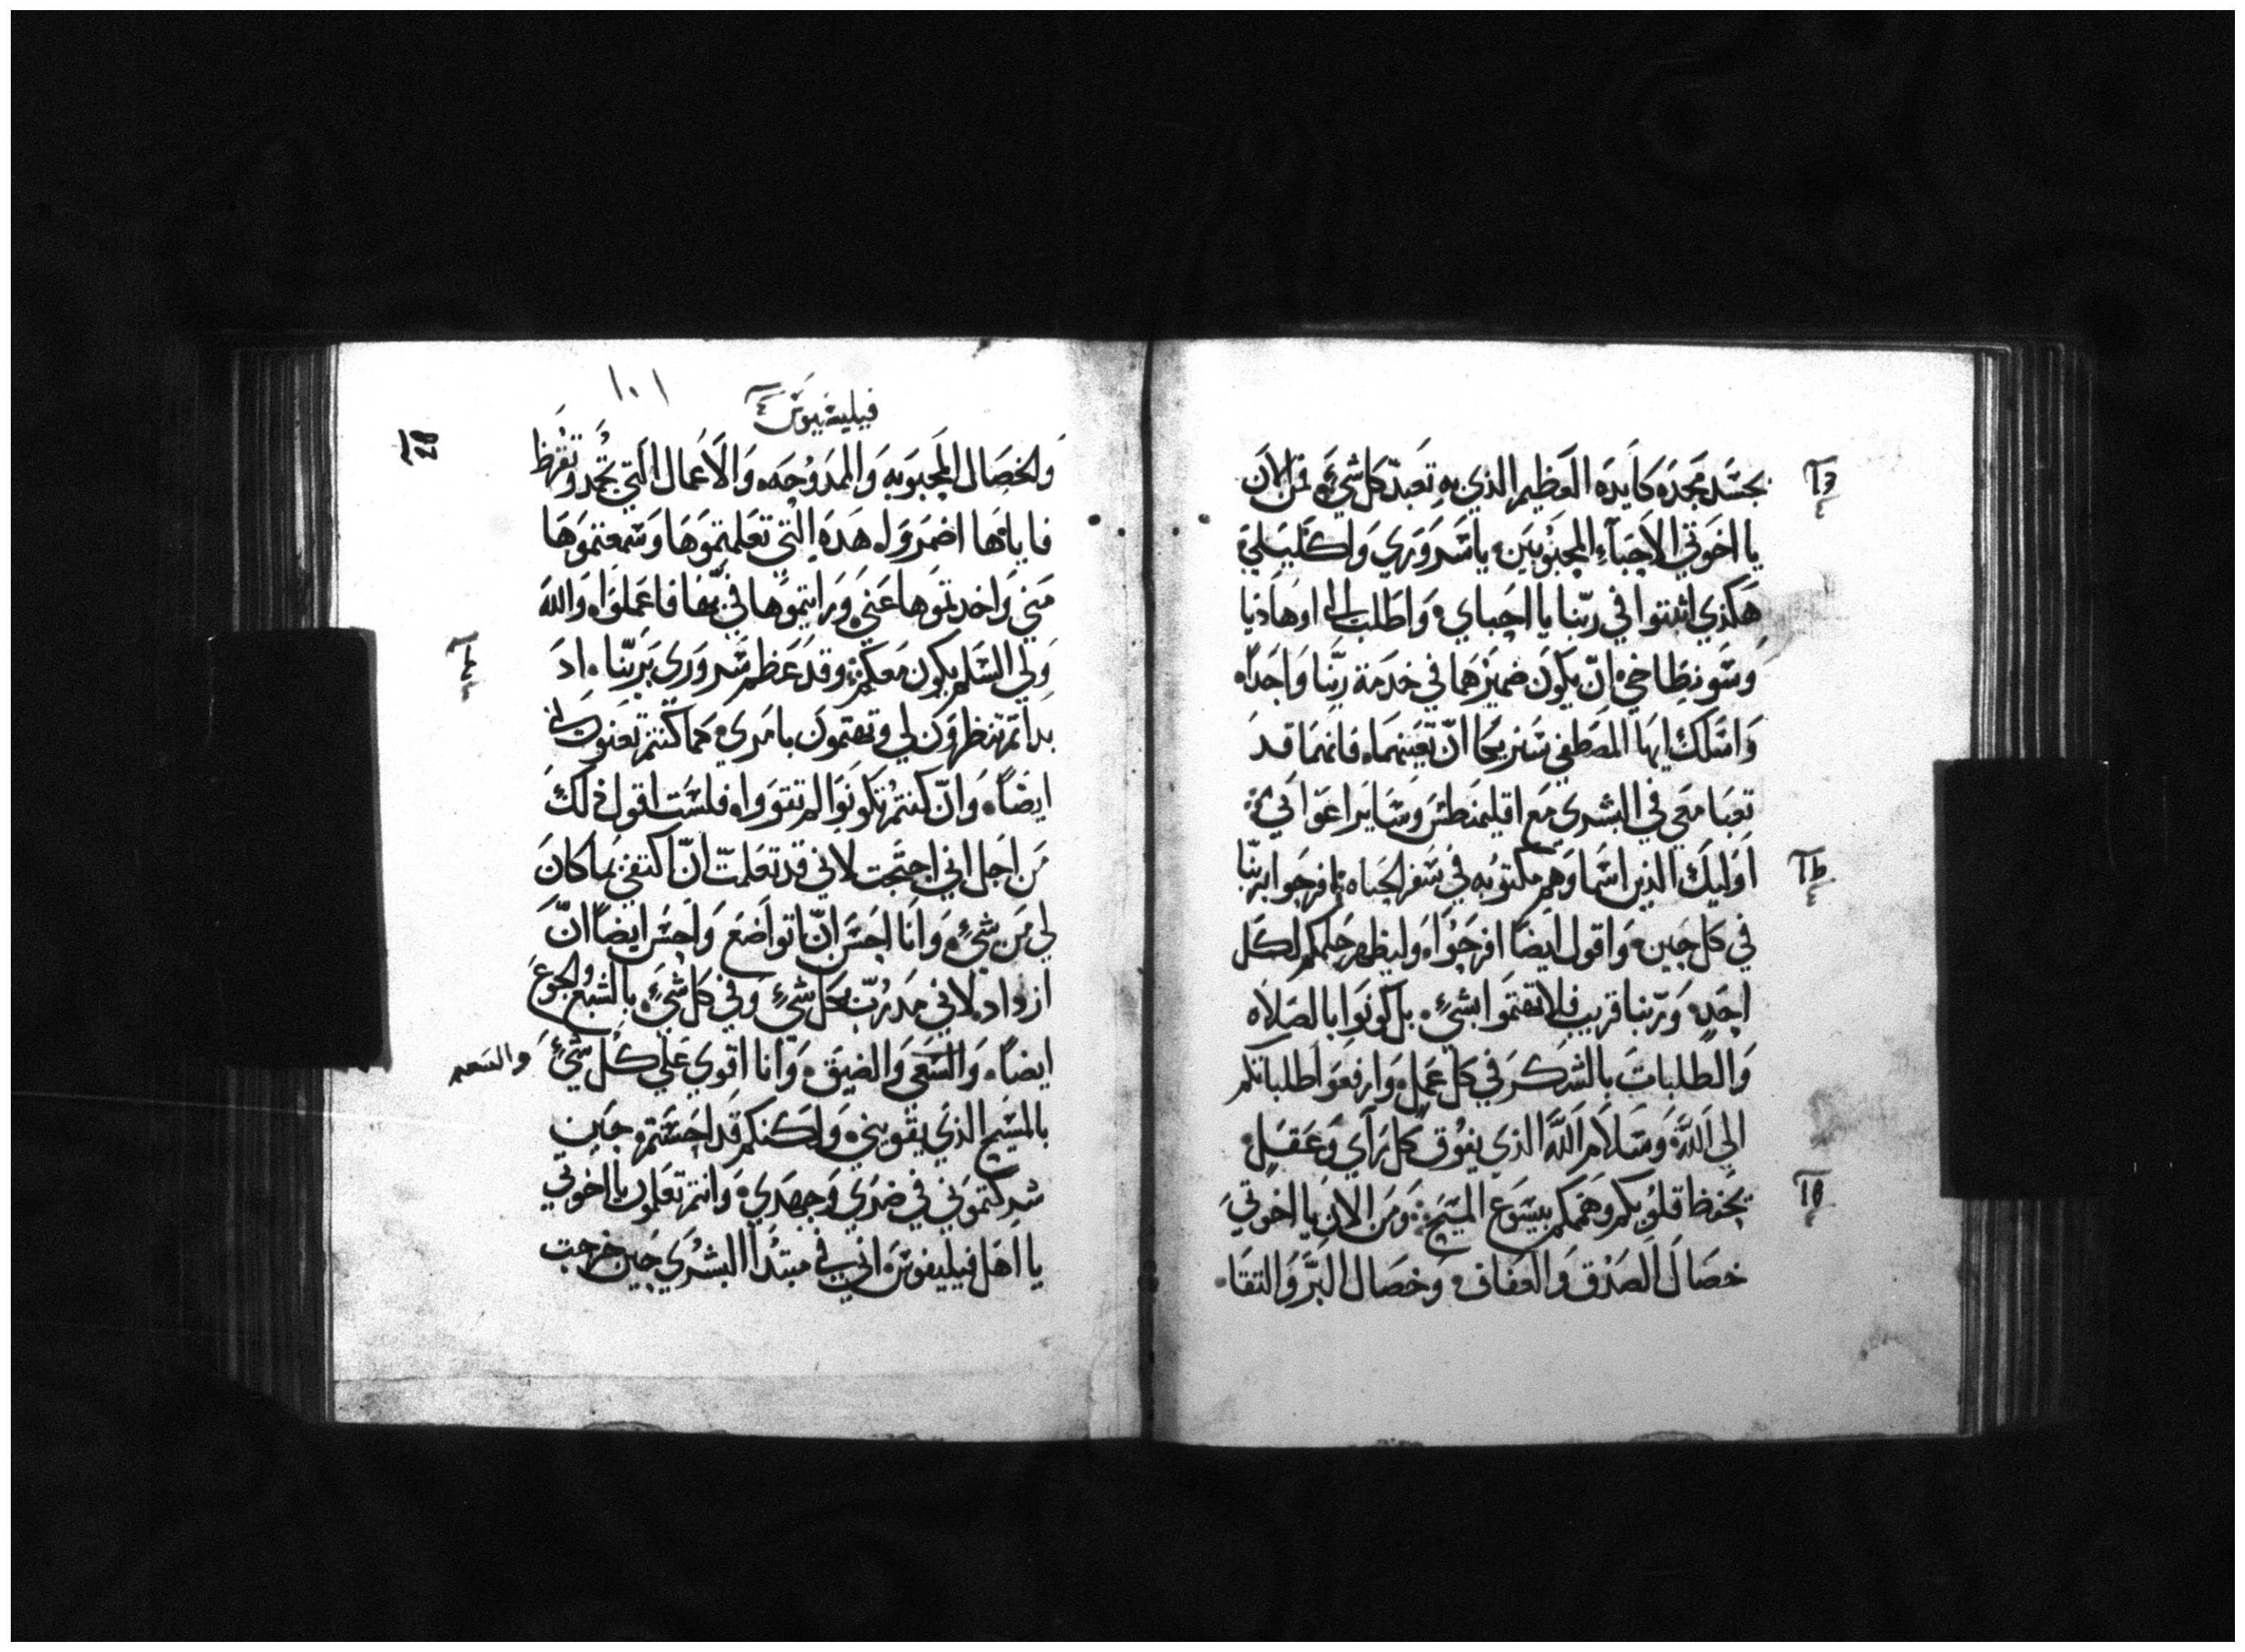 بجسد مجده كايده العظيم الذي به تعبد كل شيء فمن الان
يا اخوتي الاحباء المحبوبين يا سروري واكليلي
هكذي اثبتوا في ربنا يا احباي واطلب الى اوهاديا
وسونطاخي ان يكون ضميرهما في خدمة ربنا واحدا
واسلك ايها المصطفي سنزيحا ان تعينهما فانهما قد
تعبا معي في البشرى مع اقليمنطس وساير اعواني
اوليك الذين اسماوهم مكتوبه في سفر الحياه افرحوا بربنا
في كل حين واقول ايضا افرحوا وليظهر حلمكم لكل
احد وربنا قريب فلا تهتموا بشيء بل كونوا بالصلاه
والطلبات بالشكر في كل عمل وارفعوا طلباتكم
الى الله وسلام الله الذي يفوق كل راي وعقل
يحفظ قلوبكم وهممكم بيسوع المسيح ومن الان يا اخوتي
خصال الصدق والعفاف وخصال البر والتقا
١٠١
فيليفسيوس ٤
والخصال المحبوبه والممدوحه والاعمال التي تحمد وتقرظ
فاياها اضمروا هذه التي تعلمتموها وسمعتموها
مني واخدتموها عني ورايتموها في بها فاعملوا والله
ولي السلم يكون معكم وقد عظم سروري بربنا اد
بداتم تنظرون لي وتهتمون بامري كما كنتم تعنون لي
ايضا وان كنتم تكونوا لم تتوروا فلست اقول ذلك
من اجل اني احتجت لاني قد تعلمت ان اكتفي بما كان
لي من شيء وانا احسن ان اتواضع واحسن ايضا ان
ازداد لاني مدرب بكل شيء وفي كل شيء بالشبع والجوع
ايضا والسعي والضيق وانا اقوي علي كل شيء
والسعه
بالمسيح الذي يقويني ولكنكم قد احسنتم حين
شركتموني في ضري وجهدي وانتم تعلمون يا اخوتي
يا اهل فيليفوس اني في مبتدا البشرى حين خرجت